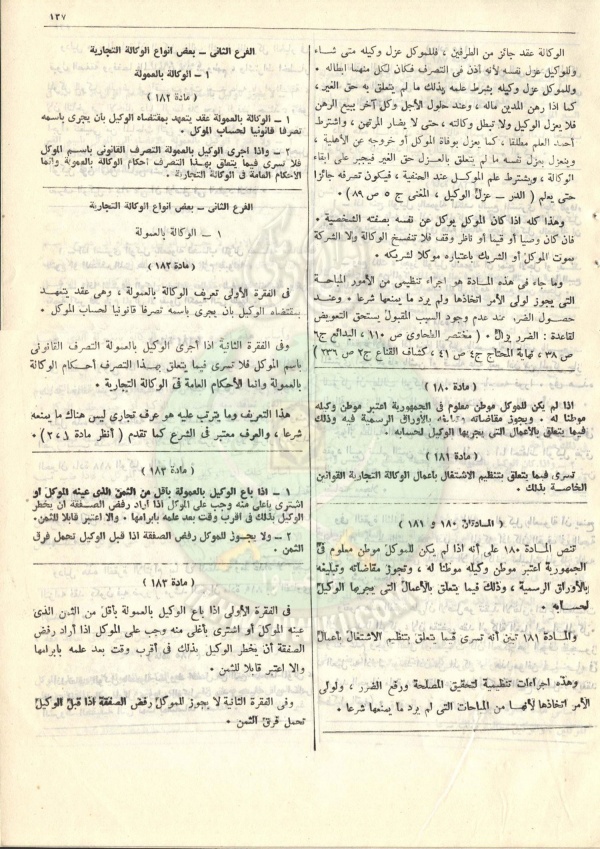 ١٣٧
الوكالة عقد جائز من الطرفين ، فللموكل عزل وكيله متى شاء
وللوكيل عزل نفسه لأنه اذن فى التصرف فكان لكل منهما ابطاله .
وللموكل عزل وكيله بشرط علمه بذلك ما لم يتعلق به حق الغير ،
كما اذا رهن المدين ماله ، وعند حلول الأجل وكل آخر ببيع الرهن
فلا يعزل الوكيل ولا تبطل وكالته ، حتى لا يضار المرتهن ، واشترط
أحمد العلم مطلقا ، كما يعزل بوفاة الموكل أو خروجه عن الأهلية ،
وينعزل بعزل نفسه ما لم يتعلق بالعزل حق الغير فيجبر على ابقاء
الوكالة ، ويشترط علم الموكل عند الحنفية ، فيكون تصرفه جائزا
حتى يعلم ( الدر ــ عزل الوكيل ، المغنى ج ٥ ص ٨٩ ) .
وهذا كله اذا كان الموكل يوكل عن نفسه بصفته الشخصية .
فان كان وصيا أو قيما أو ناظر وقف فلا تنفسخ الوكالة ولا الشركة
بموت الموكل أو الشريك باعتباره موكلا لشريكه .
وما جاء فى هذه المادة هو اجراء تنظيمى من الأمور المباحة
التى يجوز لولى الأمر اتخاذها ولم يرد ما يمنعها شرعا . وعند
حصول الضرر عند عدم وجود السبب المقبول يستحق التعويض
لقاعدة : الضرر يزال . ( مختصر الطحاوى ص ١١٠ ، البدائع ج٦
ص ٣٨ ، نهاية المحتاج ج٤ ص ٤١ ، كشاف القناع ج٢ ص ٢٣٦ )
( مادة ١٨٠ )
اذا لم يكن للموكل موطن معلوم فى الجمهورية اعتبر موطن وكيله
موطنا له . ويجوز مقاضاته وتبليغه بالأوراق الرسمية فيه وذلك
فيما يتعلق بالأعمال التى يجريها الوكيل لحسابه .
( مادة ١٨١ )
تسرى فيما يتعلق بتنظيم الاشتغال بأعمال الوكالة التجارية القوانين
الخاصة بذلك .
( المادتان ١٨٠ و ١٨١ )
تنص المادة ١٨٠ على أنه اذا لم يكن للموكل موطن معلوم فى
الجمهورية اعتبر موطن وكيله موطنا له ، وتجوز مقاضاته وتبليغه
بالأوراق الرسمية ، وذلك فيما يتعلق بالأعمال التى يجريها الوكيل
لحسابه .
والمادة ١٨١ تبين أنه تسرى فيما يتعلق بتنظيم الاشتغال بأعمال
وهذه اجراءات تنظيمية لتحقيق المصلحة ورفع الضرر ، ولولى
الأمر اتخاذها لأنها من المباحات التى لم يرد ما يمنعها شرعا .
الفرع الثانى ــ بعض أنواع الوكالة التجارية
١ ــ الوكالة بالعمولة
( مادة ١٨٢ )
١ ــ الوكالة بالعمولة عقد يتعهد بمقتضاه الوكيل بأن يجرى باسمه
تصرفا قانونيا لحساب الموكل .
٢ ــ واذا أجرى الوكيل بالعمولة التصرف القانونى باسم الموكل
فلا تسرى فيما يتعلق بهذا التصرف أحكام الوكالة بالعمولة وانما
الأحكام العامة فى الوكالة التجارية .
الفرع الثانى ــ بعض أنواع الوكالة التجارية
١ ــ الوكالة بالعمولة
( مادة ١٨٢ )
فى الفقرة الأولى تعريف الوكالة بالعمولة ، وهى عقد يتعهد
بمقتضاه الوكيل بأن يجرى باسمه تصرفا قانونيا لحساب الموكل .
وفى الفقرة الثانية اذا أجرى الوكيل بالعمولة التصرف القانونى
باسم الموكل فلا تسرى فيما يتعلق بهذا التصرف أحكام الوكالة
بالعمولة وانما الأحكام العامة فى الوكالة التجارية .
هذا التعريف وما يترتب عليه هو عرف تجارى ليس هناك ما يمنعه
شرعا ، والعرف معتبر فى الشرع كما تقدم ( أنظر مادة ٢٧٨ ) .
( مادة ١٨٣ )
١ ــ اذا باع الوكيل بالعمولة بأقل من الثمن الذى عينه الموكل أو
اشترى بأعلى منه وجب على الموكل اذا أراد رفض الصفقة أن يخطر
الوكيل بذلك فى أقرب وقت بعد علمه بابرامها . والا اعتبر قابلا للثمن .
٢ ــ ولا يجوز للموكل رفض الصفقة اذا قبل الوكيل تحمل فرق
الثمن .
( مادة ١٨٣ )
فى الفقرة الأولى اذا باع الوكيل بالعمولة بأقل من الثمن الذى
عينه الموكل أو اشترى بأعلى منه وجب على الموكل اذا أراد رفض
الصفقة أن يخطر الوكيل بذلك فى أقرب وقت بعد علمه بابرامها
والا اعتبر قابلا للثمن .
وفى الفقرة الثانية لا يجوز للموكل رفض الصفقة اذا قبل الوكيل
تحمل فرق الثمن .